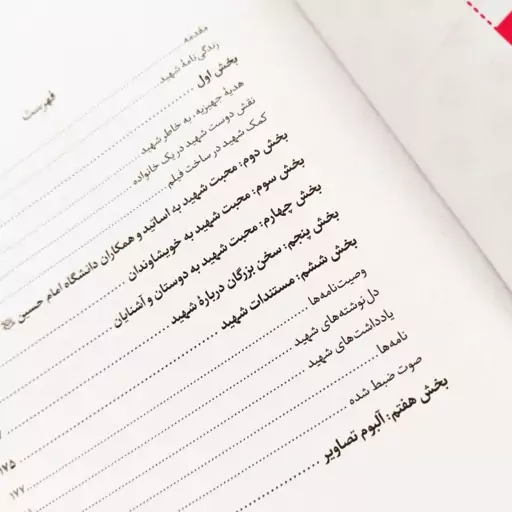 فهرست
مقدمه
زندگی‌نامهٔ شهید
بخش اول
هدیهٔ جهیزیه، به خاطر شهید
نقش دوست شهید در یک خانواده
کمک شهید در ساخت فیلم
بخش دوم: محبت شهید به اساتید و همکاران دانشگاه امام حسین
بخش سوم: محبت شهید به خویشاوندان
بخش چهارم: محبت شهید به دوستان و آشنایان
بخش پنجم: سخن بزرگان دربارهٔ شهید
بخش ششم: مستندات شهید
وصیت‌نامه‌ها
دل‌نوشته‌های شهید
یادداشت‌های شهید
نامه‌ها
صوت ضبط شده ۱۷۵
بخش هفتم: آلبوم تصاویر ۱۷۷